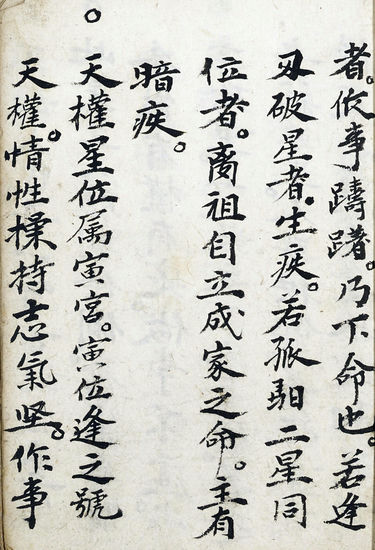 者。依事躊躇。乃下命也。若逢
刄破星者。生疾。若孤馹二星同
位者。离祖自立成家之命。主有
暗疾。
○天權星位属寅宫。寅位逢之號
天權。情性揉持志氣坚。作事